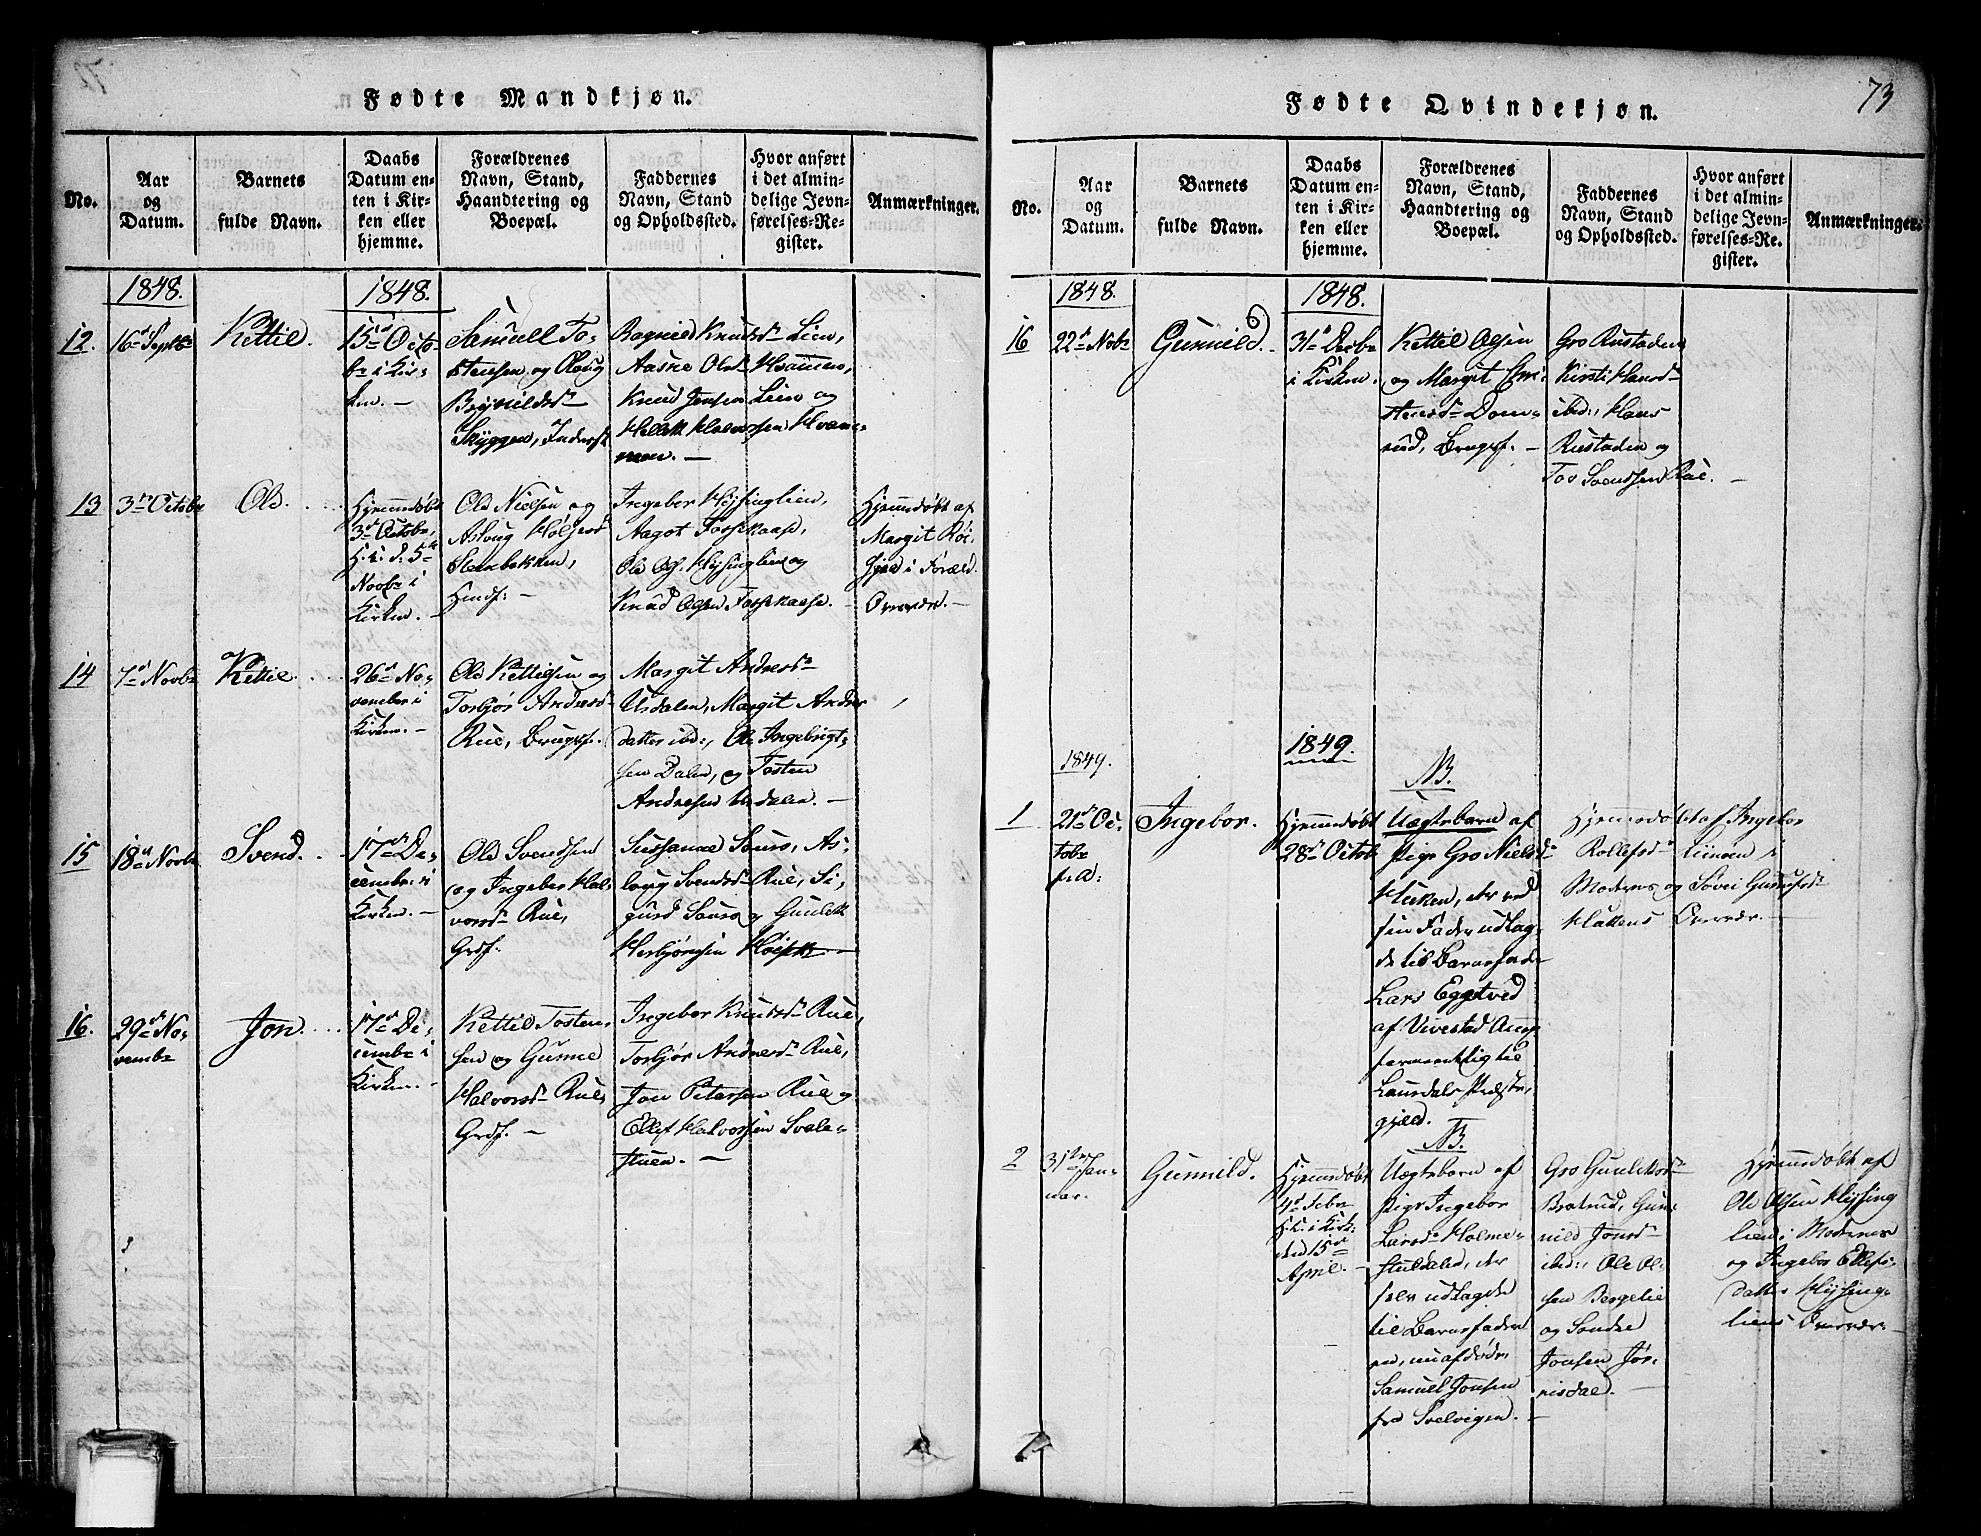 Fødte Mandkjøn.
No.
Aar
og
Datum.
Barnets
fulde Navn.
Daabs
Datum en-
ten i Kir-
ken eller
hjemme.
Forældrenes
Navn, Stand,
Haandtering og
Boepæl.
Faddernes
Navn, Stand
og Opholdssted.
Hvor anført
i det almin-
delige Jevn-
førelses-Re-
gister.
Anmærkninger.
1848.
1848.
12.
16de Septbr
Kettil.
15de Octo-
br i Kir-
ken. —
Samuell To-
stensen og Oloug
Brynildsdr
Skyggen,
Ragnild Knudsdr Lien,
Aasne Olsdr Hvammen,
Knud Jensen Lien og
Hellek Halvorsen Hvam-
men. —
13
3die Octobr
Ole.
Hjemmedøbt
3de Octobr,
5te
Novbr i
Kirken. —
Ole Nielsen og
Asloug Holjersdr
Stenbekken,
Huusf: —
Ingebor Kløsinglien,
Aagot Fossekaase,
Ole Kløsinglien og
Knud Olsen Fossekaase. —
Hjemmedøbt af
Margit
i Foræld.
Overvær. —
14
7de Novbr
Kettil.
26de No-
vember i
Kirken. —
Ole Kettilsen og
Torbjør Andersdr
Rue, Brugsf.
Margit Andersdr
Urdalen, Margit Anders
datter ibd:, Ole Ingebrigt-
sen Dalen, og Tosten
Andersen Urdalen. —
15
18de Novbr
Svend.
17de De-
cembr i
Kirken. —
Ole Svendsen
og Ingebor Hal-
vorsdr Rue,
Grdf.
Sussanne Sauro, As-
loug Svendsdr Rue, Si-
gurd Sauro og Gunlek
Herbjørnsen
16.
29de No-
vembr
Jon.
17de De-
cembr i
Kirken. —
Kettil Tosten-
sen og Gunne
Halvorsdr Rue,
Grdf. —
Ingebor Knudsdr Rue,
Torbjør Andersdr Rue,
Jon Petersen Rue og
Ellef Halvorsen Svale-
stuen. —
73
Fødte Qvindekjøn.
No.
Aar
og
Datum.
Barnets
fulde Navn.
Daabs
Datum en-
ten i Kir-
ken eller
hjemme.
Forældrenes
Navn, Stand,
Haandtering og
Boepæl.
Faddernes
Navn, Stand
og Opholdssted.
Hvor anført
i det almin-
delige Jevn-
førelses-Re-
gister.
Anmærkninger.
1848.
1848.
16
22de Novbr
Gunnild.
31te Decbr
i Kirken.
Kettil Olsen
og Margit
Dom-
rud, Brugsf. —
Gro Rustaden
Kirsti Hansdr
ibid:, Hans
Rustaden og
Tor Svendsen Rue. —
1849.
1849.
1
21de Oc-
tobr
f. A:
Ingebor.
Hjemmedøbt
28de Octob
NB.
Uægtebarn af
Pige Gro Nielsdr
der ved
sin Fader udlag-
de til Barnefader
Lars Eggtved
af Vivestad
til
Laurdals Præste-
gjeld.
Hjemmedøbt af Ingebor
Rollefsdr i
Moderens og Sovei
Overvær. —
2
31te Jan-
uar.
Gunnild.
Hjemmedøbt
4de Febr
i Kirk:
den 15de
April. —
NB.
Uægtebarn af
Pige Ingebor
Larsdr Holme-
stuldalen, der
selv udlagde
til Barnefader
en, nu afdøde
Samuel Jonsen
fra Svelvigen. —
Gro Gunleksdr
Bratrud, Gun-
nild Jonsdr
ibid:, Ole Ol-
sen Bergelie
og Sondre
Jonsen Jør-
nisdal. —
Hjemmedøbt af
Ole Olsen Kløsing
lien i Moderens
og Ingebor Ellefs-
datter Kløsing-
liens Overvær —